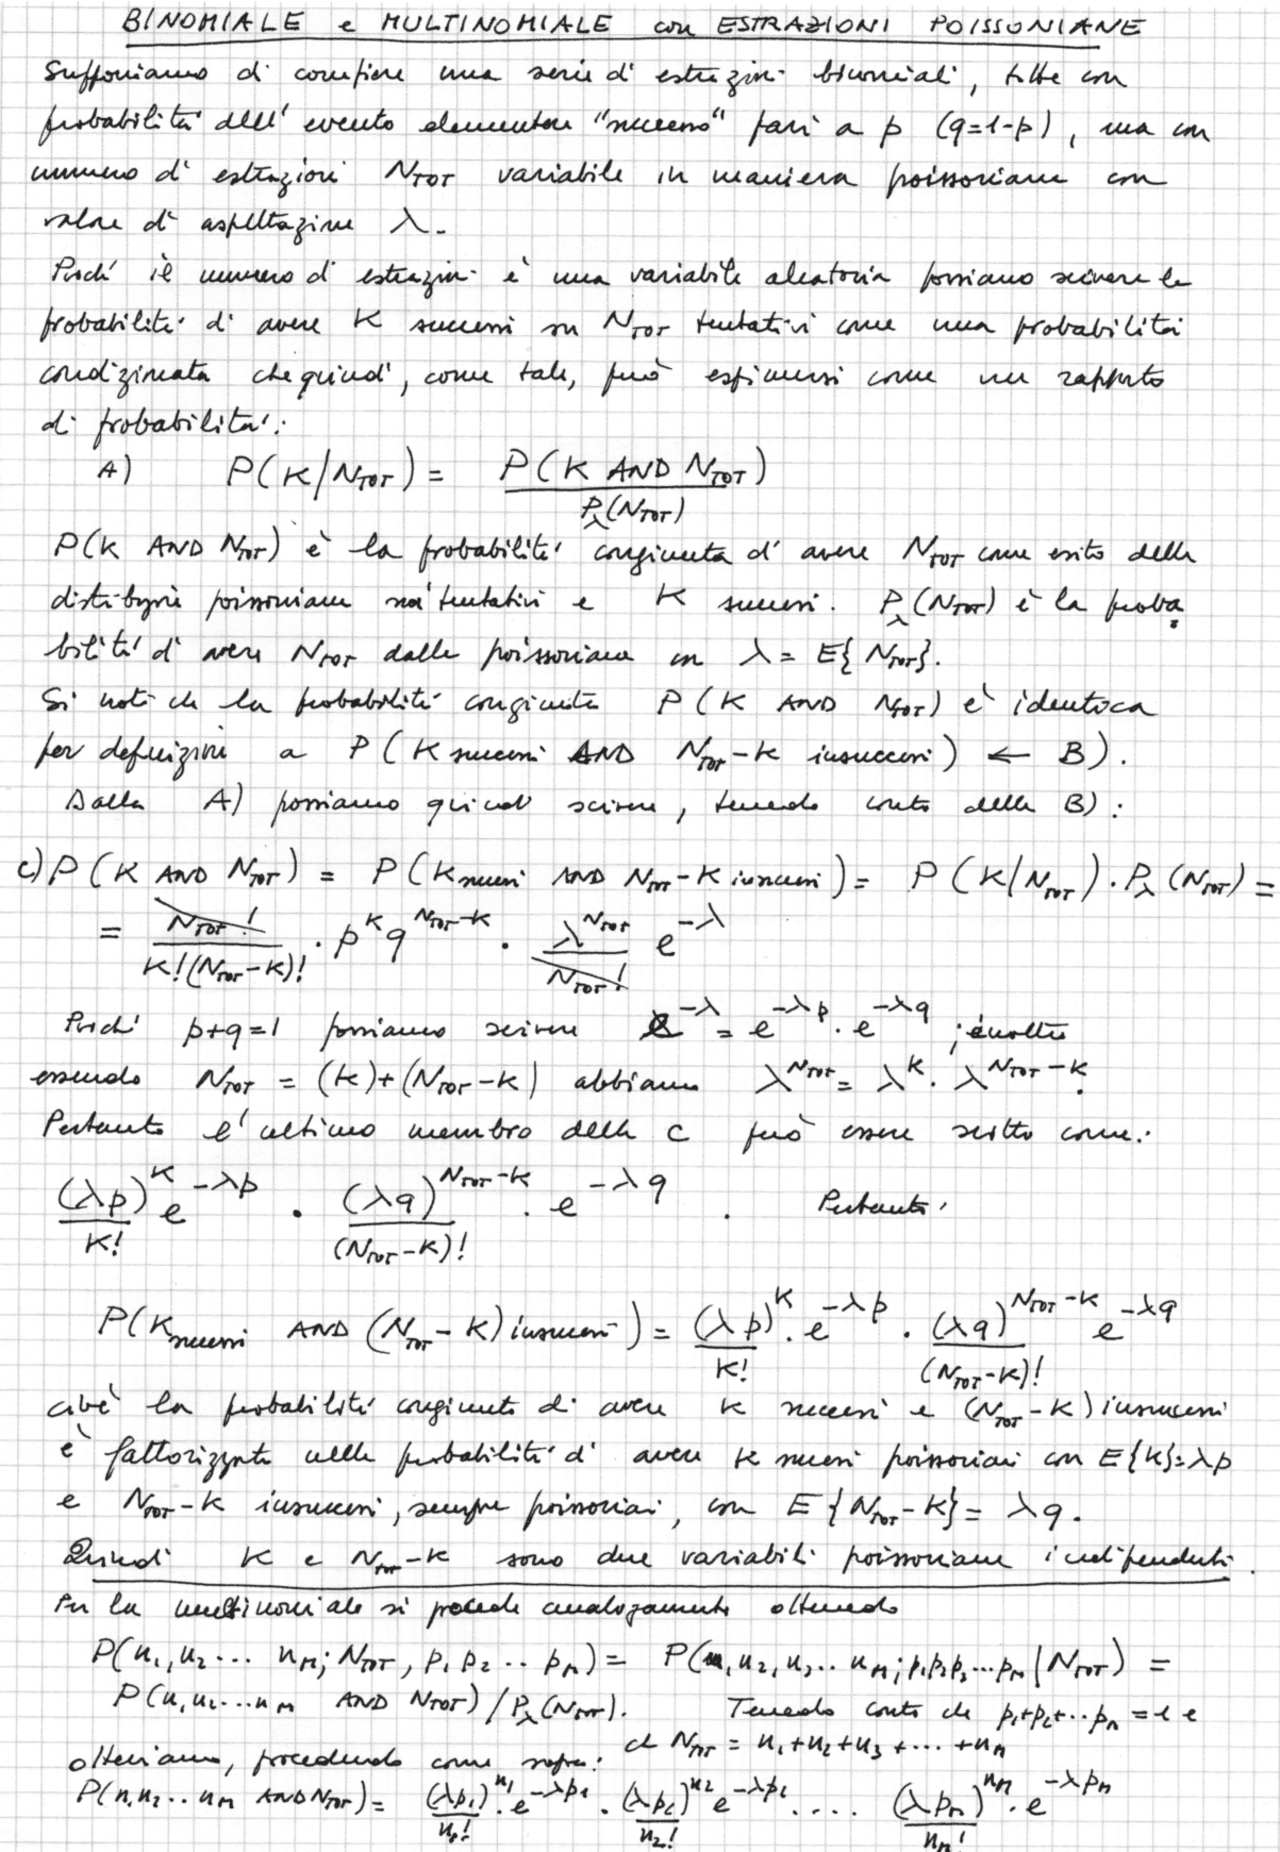 BINOMIALE e MULTINOMIALE con ESTRAZIONI POISSONIANE
Supponiamo di compiere una serie di estrazioni binomiali, tutte con
probabilità dell'evento elementare "successo" pari a p (q=1-p), ma con
numero di estrazioni N_TOT variabile in maniera poissoniana con
valore di aspettazione λ.
Poiché il numero di estrazioni è una variabile aleatoria possiamo scrivere la
probabilità di avere K successi su N_TOT tentativi come una probabilità
condizionata che quindi, come tale, può esprimersi come un rapporto
di probabilità:
A) P(K/N_TOT) = P(K AND N_TOT) / P_λ(N_TOT)
P(K AND N_TOT) è la probabilità congiunta di avere N_TOT come esito della
distribuzione poissoniana sui tentativi e K successi. P_λ(N_TOT) è la proba
bilità di avere N_TOT dalla poissoniana con λ = E{N_TOT}.
Si noti che la probabilità congiunta P(K AND N_TOT) è identica
per definizione a P(K successi AND N_TOT-K insuccessi) ← B).
Dalla A) possiamo quindi scrivere, tenendo conto della B):
C) P(K AND N_TOT) = P(K successi AND N_TOT-K insuccessi) = P(K/N_TOT)·P_λ(N_TOT) =
= N_TOT!/(K!(N_TOT-K)!) · p^K q^(N_TOT-K) · λ^N_TOT/N_TOT! e^-λ
Poiché p+q=1 possiamo scrivere e^-λ = e^-λp · e^-λq ; inoltre
essendo N_TOT = (K)+(N_TOT-K) abbiamo λ^N_TOT = λ^K · λ^(N_TOT-K).
Pertanto l'ultimo membro della C può essere scritto come:
(λp)^K/K! e^-λp · (λq)^(N_TOT-K)/(N_TOT-K)! · e^-λq . Pertanto:
P(K successi AND (N_TOT-K) insuccessi) = (λp)^K/K! · e^-λp · (λq)^(N_TOT-K)/(N_TOT-K)! e^-λq
cioè la probabilità congiunta di avere K successi e (N_TOT-K) insuccessi
è fattorizzata nelle probabilità di avere K successi poissoniani con E{K}=λp
e N_TOT-K insuccessi, sempre poissoniani, con E{N_TOT-K} = λq.
Quindi K e N_TOT-K sono due variabili poissoniane indipendenti.
Per la multinomiale si procede analogamente ottenendo
P(n1,n2... nM; N_TOT, p1 p2 .. pM) = P(n1 n2, n3.. nM; p1 p2 p3...pM | N_TOT) =
P(n1 n2...nM AND N_TOT) / P_λ(N_TOT). Tenendo conto che p1+p2+..pM = 1 e
ch N_TOT = n1+n2+n3+...+nM
otteniamo, procedendo come sopra:
P(n1 n2.. nM AND N_TOT) = (λp1)^n1/n1! · e^-λp1 · (λp2)^n2/n2! e^-λp2 .... (λpM)^nM/nM! · e^-λpM